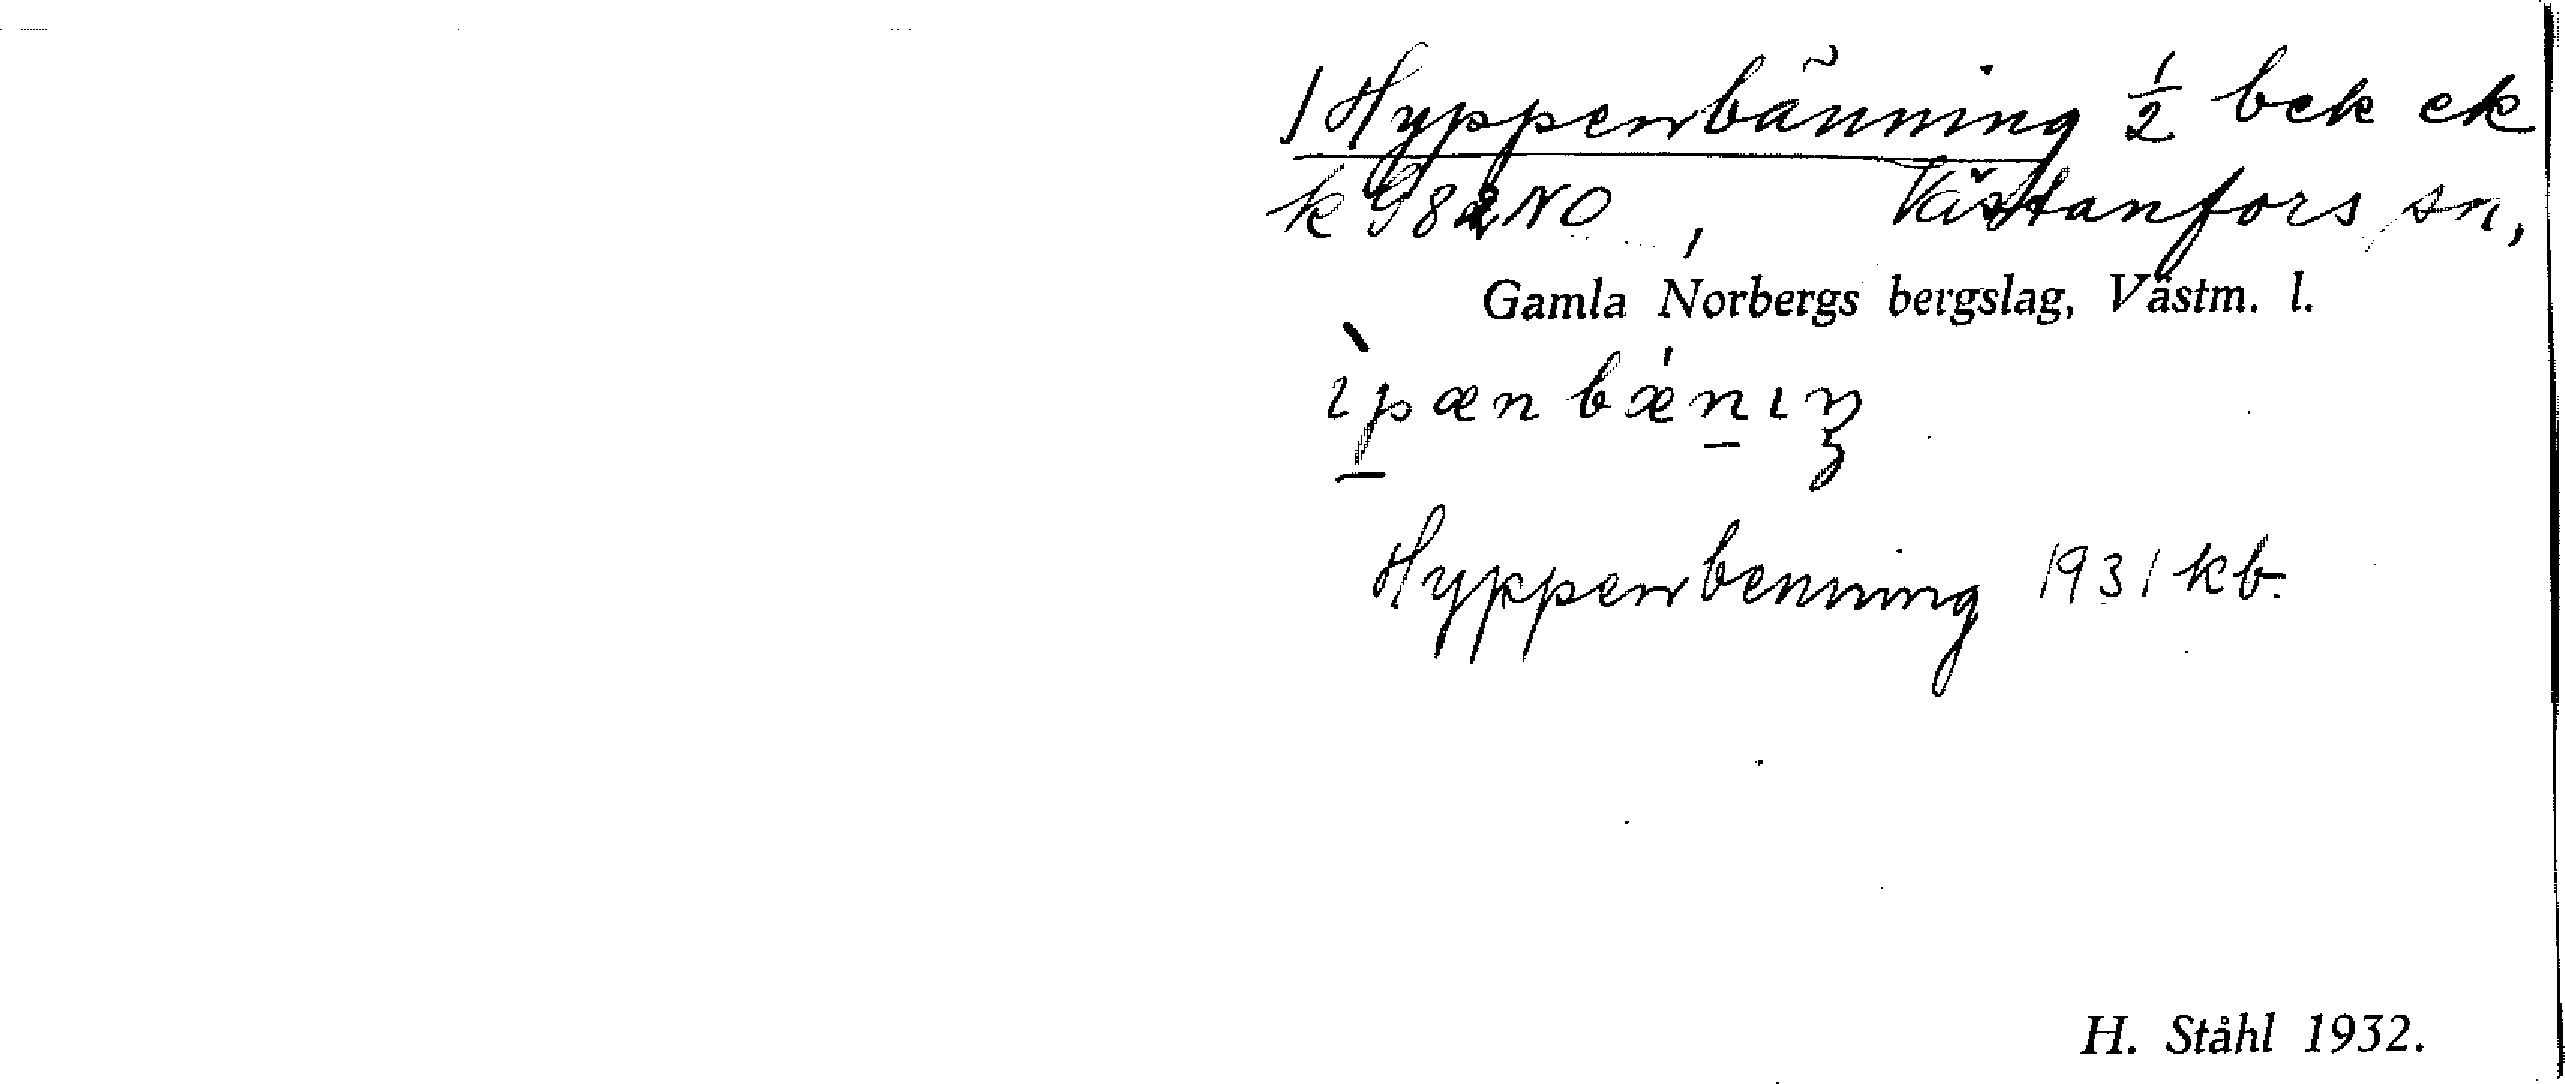 / Hyppenbänning 1/2 bek ek
k 982 NO, Västanfors sn,
Gamla Norbergs bergslag, Västm. l.
ìpænbǽnıŋ
Hyppenbenning 1931 kb.
H. Ståhl 1932.